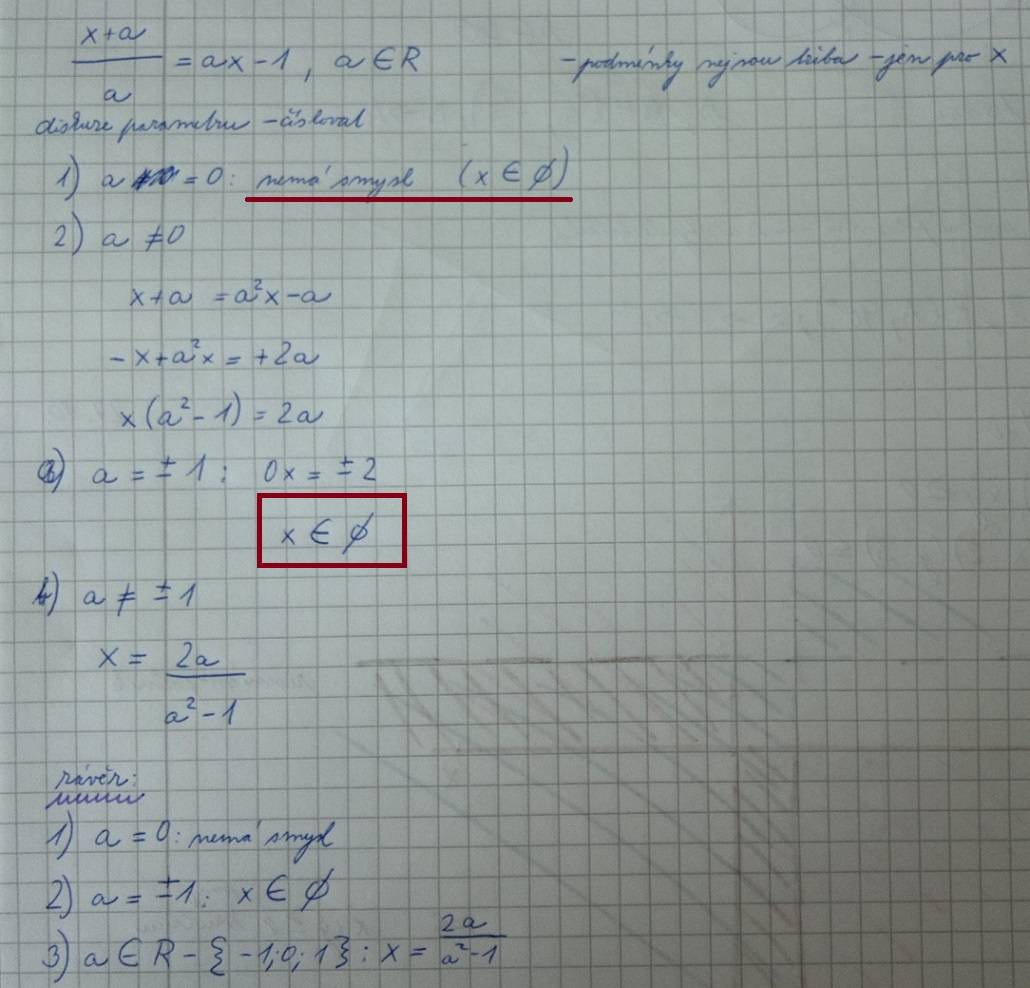 x+a/a = ax-1, a∈R -podmínky nejsou třeba -jen pro x
diskuze parametru -číslovat
1) a = 0: nemá smysl (x ∈ ∅)
2) a ≠ 0
x+a = a²x-a
-x+a²x = +2a
x(a²-1) = 2a
a) a = ±1: 0x = ±2
x ∈ ∅
b) a ≠ ±1
x = 2a/a²-1
závěr:
1) a = 0: nemá smysl
2) a = ±1: x ∈ ∅
3) a ∈ R - {-1;0;1}: x = 2a/a²-1